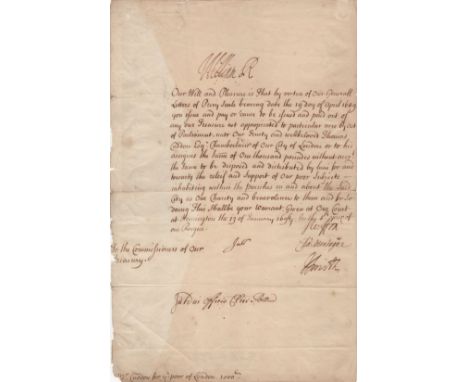 William R
Our Will and Pleasure is That by vertue of Our Generall
Letters of Privy Seale bearing date the 19 day of April 1689
you issue and pay or cause to be issued and paid out of
any our Treasure not appropriated to particular uses by Act
of Parliament unto Our Trusty and welbeloved Thomas
Cuddon Esq. Chamberlain of Our City of London or to his
assignes the summe of One thousand pounds without acct
the same to be disposed and distributed by him for and
towards the relief and support of Our poor Subjects
inhabiting within the parishes in and about the said
City as Our Charity and benevolence to them and for so
doing This shalbe your Warrant Given at Our Court
at Kensington the 13 of January 1696/7 in the 8th year of
our Reigne
To the Commissioners of our
Treasury
Office
Mr. Cuddon for ye poor of London 1000